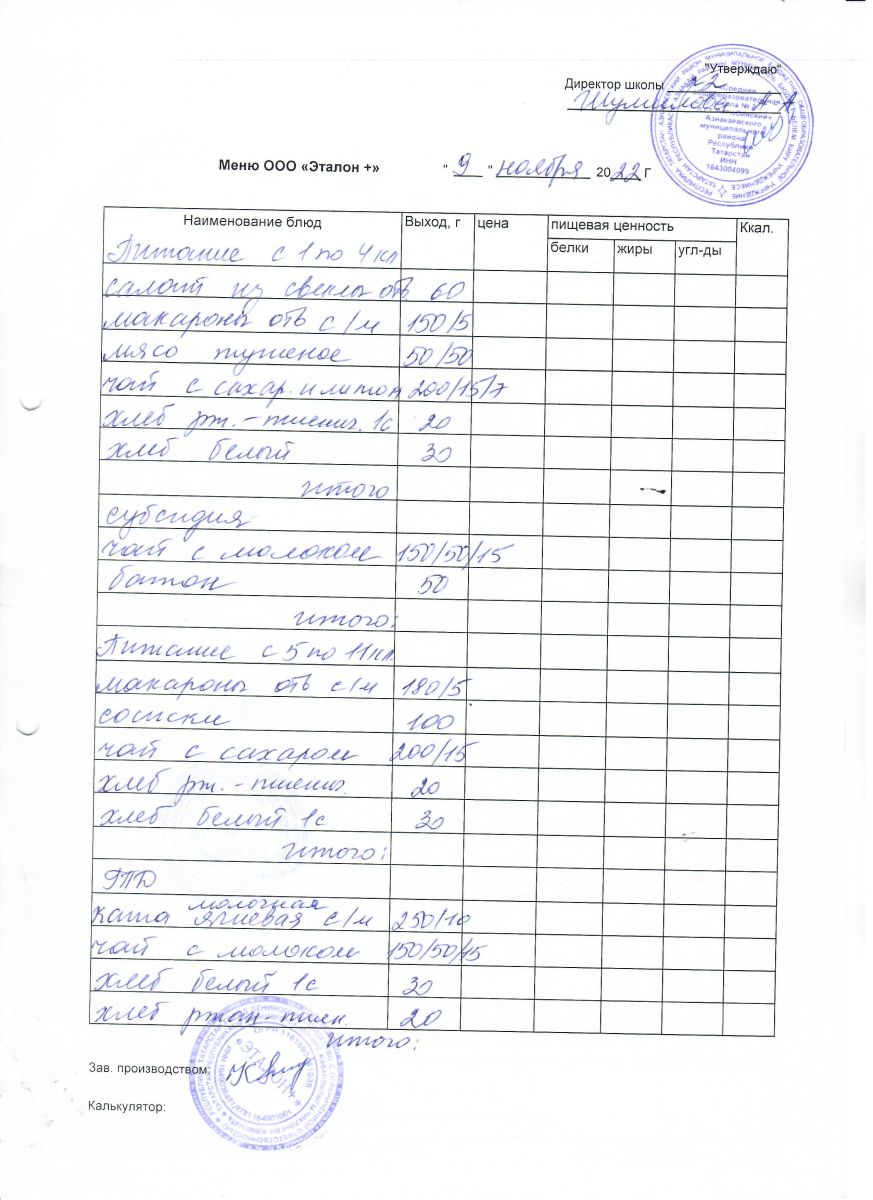 "Утверждаю"
Директор школы
Меню ООО «Эталон +» " 9 " ноября 2022 Г
Наименование блюд Выход, г цена пищевая ценность Ккал.
белки жиры угл-ды
Питание с 1 по 4 кл
салат из свеклы отв 60
макароны отв с/м 150/5
мясо тушеное 50/50
чай с сахар. и лимон 200/15/7
хлеб рж.-пшенич. 1с 20
хлеб белый 30
итого
субсидия
чай с молоком 150/50/15
батон 50
итого:
Питание с 5 по 11 кл
макароны отв с/м 180/5
сосиски 100
чай с сахаром 200/15
хлеб рж.-пшенич. 20
хлеб белый 1с 30
итого:
ГПД
молочная
каша ячневая с/м 250/10
чай с молоком 150/50/15
хлеб белый 1с 30
хлеб ржан-пшен. 20
итого:
Зав. производством:
Калькулятор:
Средняя
общеобразовательная
Азнакаевского
муниципального
района
Республики
Татарстан
ИНН
1643004099
«ЭТАЛОН+»